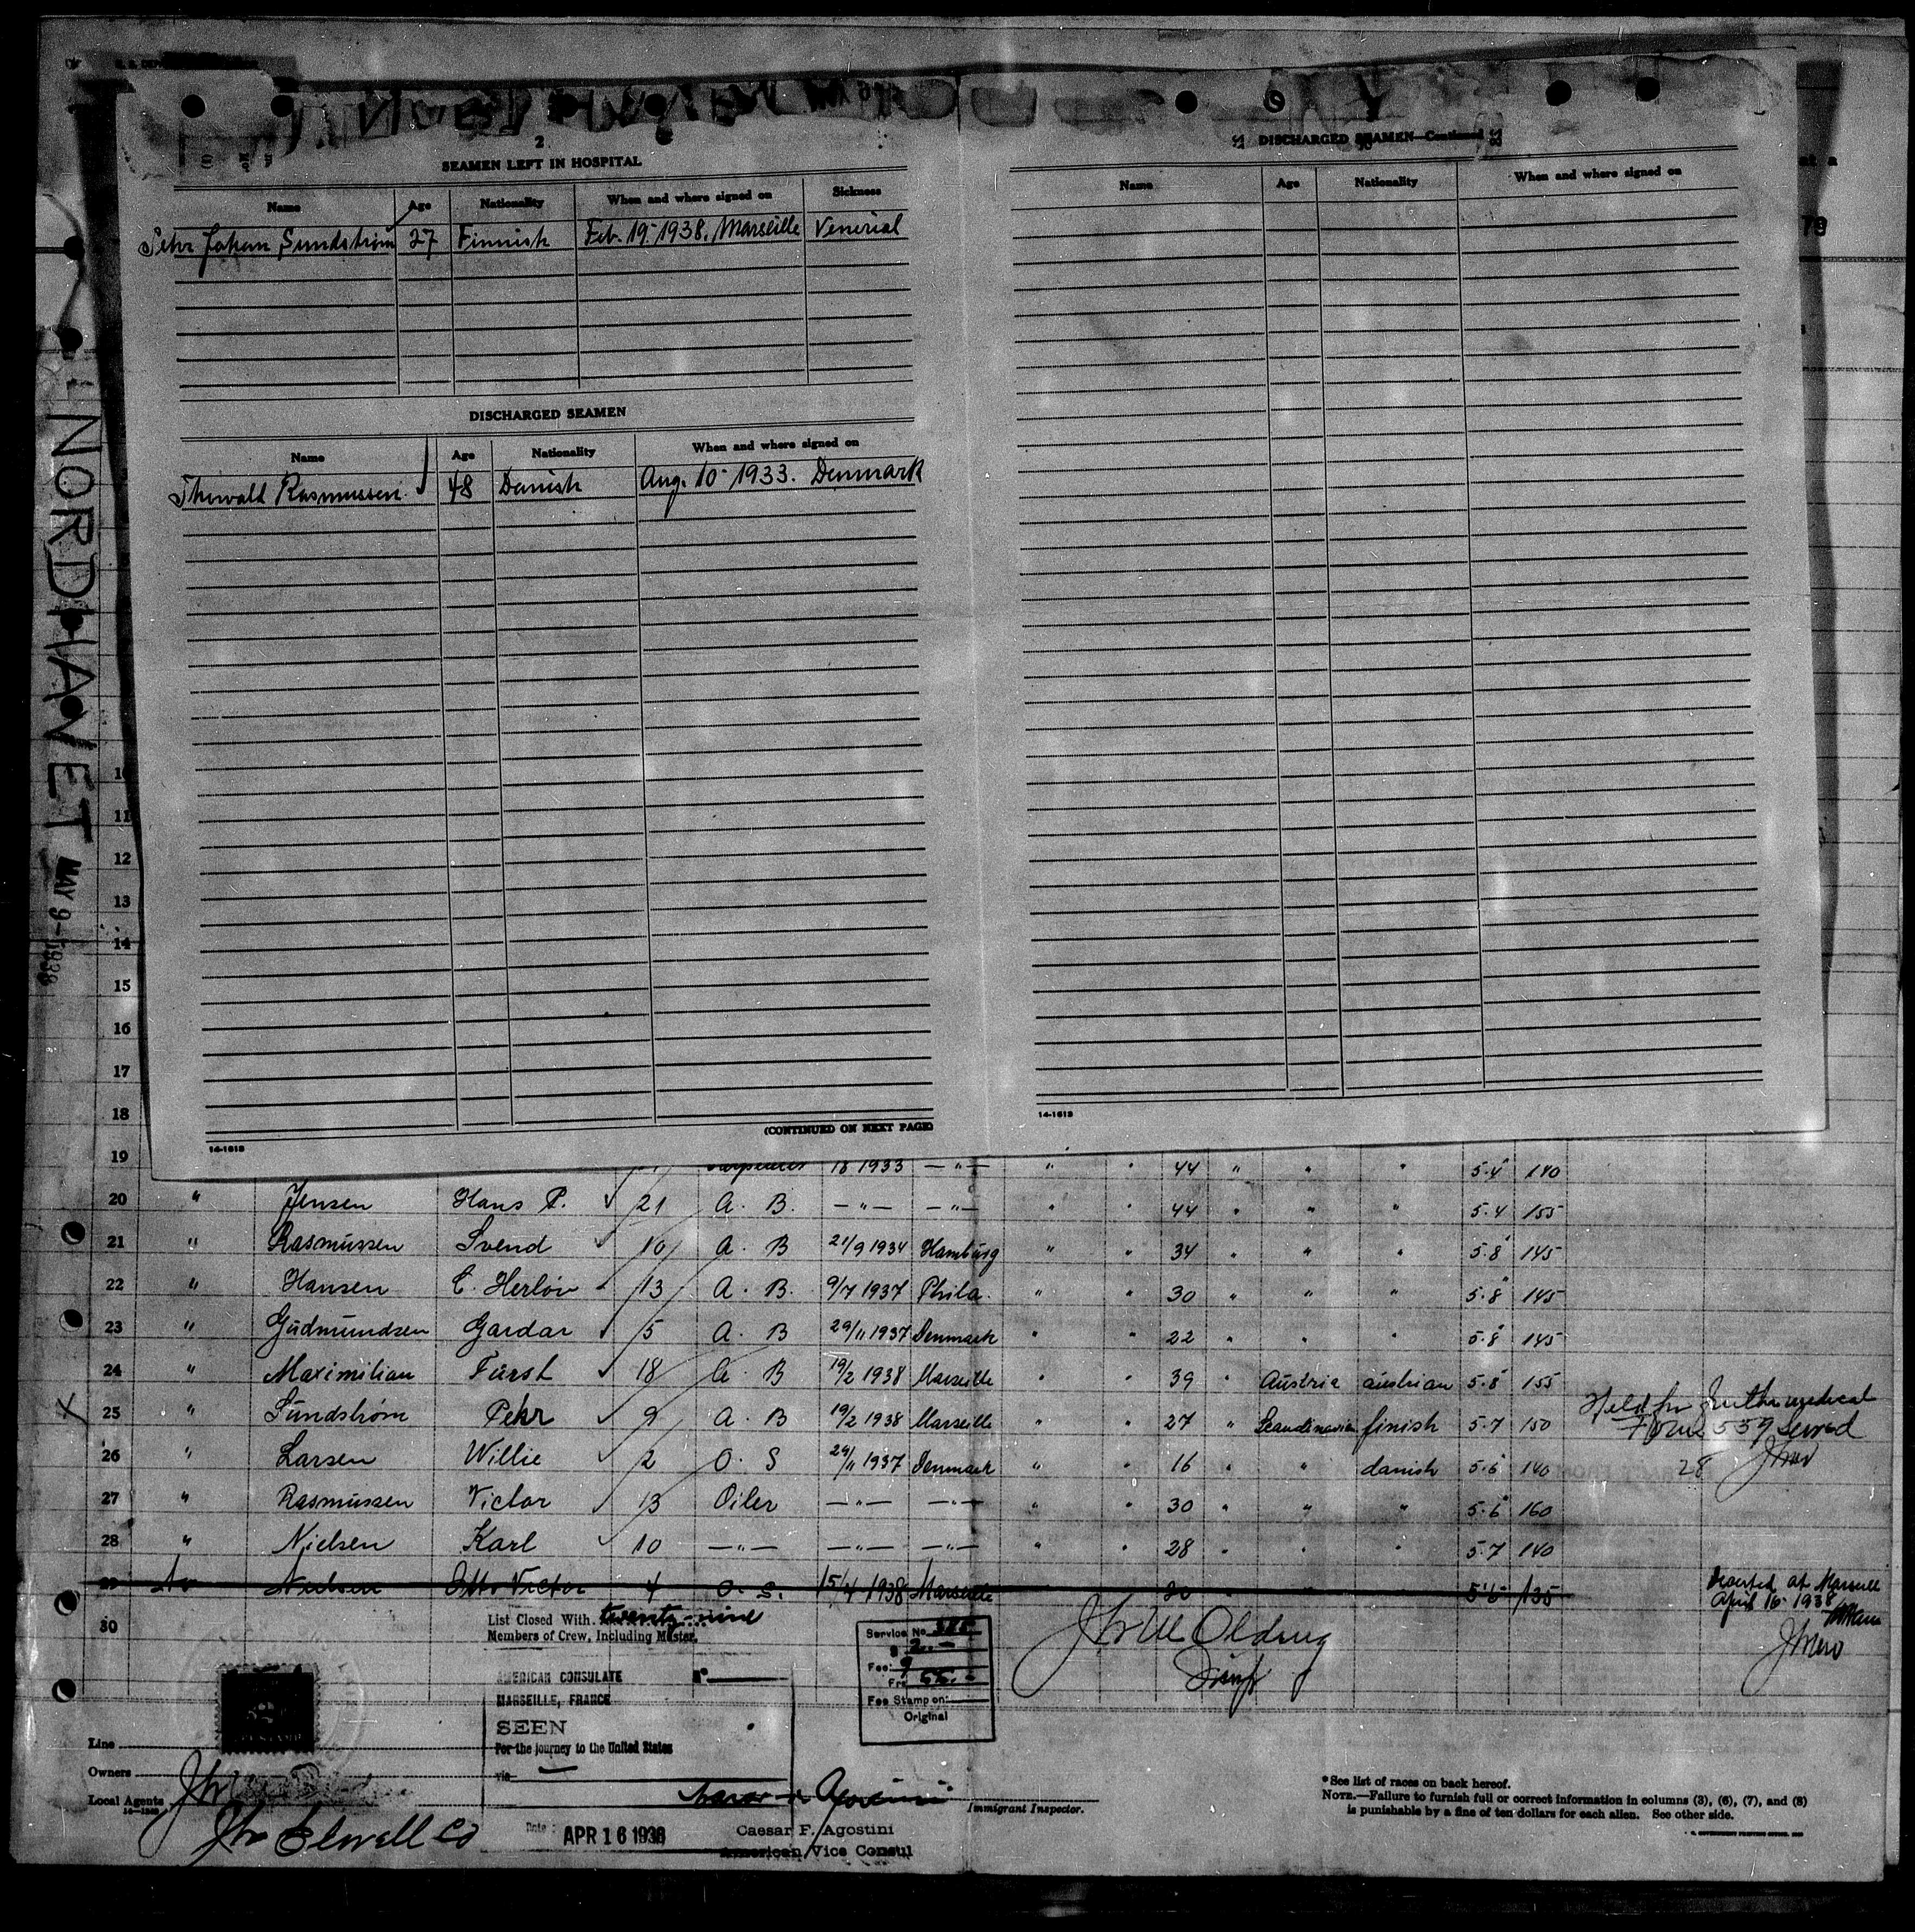 2
SEAMEN LEFT IN HOSPITAL
Name Age Nationality When and where signed on Sickness
Pehr Johan Sundström 27 Finnish Feb. 19- 1938. Marseille Venerial
DISCHARGED SEAMEN
Name Age Nationality When and where signed on
Thorvald Rasmussen 48 Danish Aug. 10- 1933. Denmark
(CONTINUED ON NEXT PAGE)
14-1613
DISCHARGED SEAMEN—Continued
Name Age Nationality When and where signed on
14-1613
NORDHAVET
MAY 9-1938
11
12
13
14
15
16
17
18
19 18 1933 —"— " " 44 " " " 5.4 140
20 " Jensen Hans P. 21 A. B. —"— —"— " " 44 " " " 5.4 155
21 " Rasmussen Svend 10 A. B 21/9 1934 Hamburg " " 34 " " " 5.8 145
22 " Hansen C. Herlöv 13 A. B. 9/7 1937 Phila. " " 30 " " " 5.8 145
23 " Gudmundsen Gardar 5 A. B 29/11 1937 Denmark " " 22 " " " 5.8 145
24 " Maximilian Fürst 18 A. B 19/2 1938 Marseille " " 39 " Austria austrian 5.8 155
25 " Sundström Pehr 9 A. B 19/2 1938 Marseille " " 27 " Scandinavian finish 5.7 150 Held for further medical
Form 559 served
26 " Larsen Willie 2 O. S 29/11 1937 Denmark " " 16 " " danish 5.6 140 28
27 " Rasmussen Victor 13 Oiler —"— —"— " " 30 " " " 5.6 160
28 " Nielsen Karl 10 —"— —"— —"— " " 28 " " " 5.7 140
29 Nielsen Otto Victor 4 O. S. 15/4 1938 Marseille 20 135 Deserted at Marseille
April 16- 1938
30
List Closed With twenty-nine
Members of Crew, Including Master.
Service No.
$ 2.-
Fee:
Frs
Fee Stamp on:
Original
AMERICAN CONSULATE
MARSEILLE, FRANCE
SEEN
For the journey to the United States
via
Date: APR 16 1938
Caesar F. Agostini
American Vice Consul
Line
Owners
Local Agents
Jhr Elwell Co
Immigrant Inspector.
*See list of races on back hereof.
NOTE.—Failure to furnish full or correct information in columns (3), (6), (7), and (8)
is punishable by a fine of ten dollars for each alien. See other side.